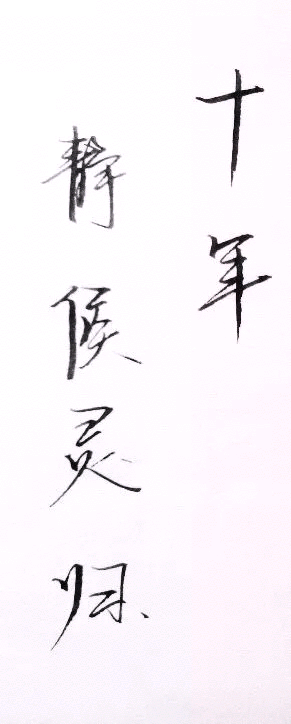 十年
静候灵归、